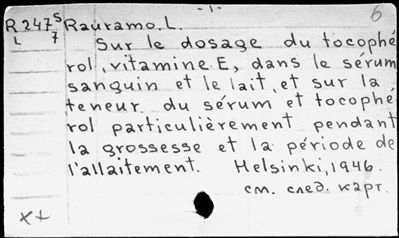 - 1 -
6
R 247 S Rauramo, L.
L 7
Sur le dosage du tocophé
rol, vitamine E, dans le sérum
sanguin et le lait, et sur la
teneur du sérum et tocophé
rol particulièrement pendant
la grossesse et la période de
l'allaitement. Helsinki, 1946.
см. след. карт.